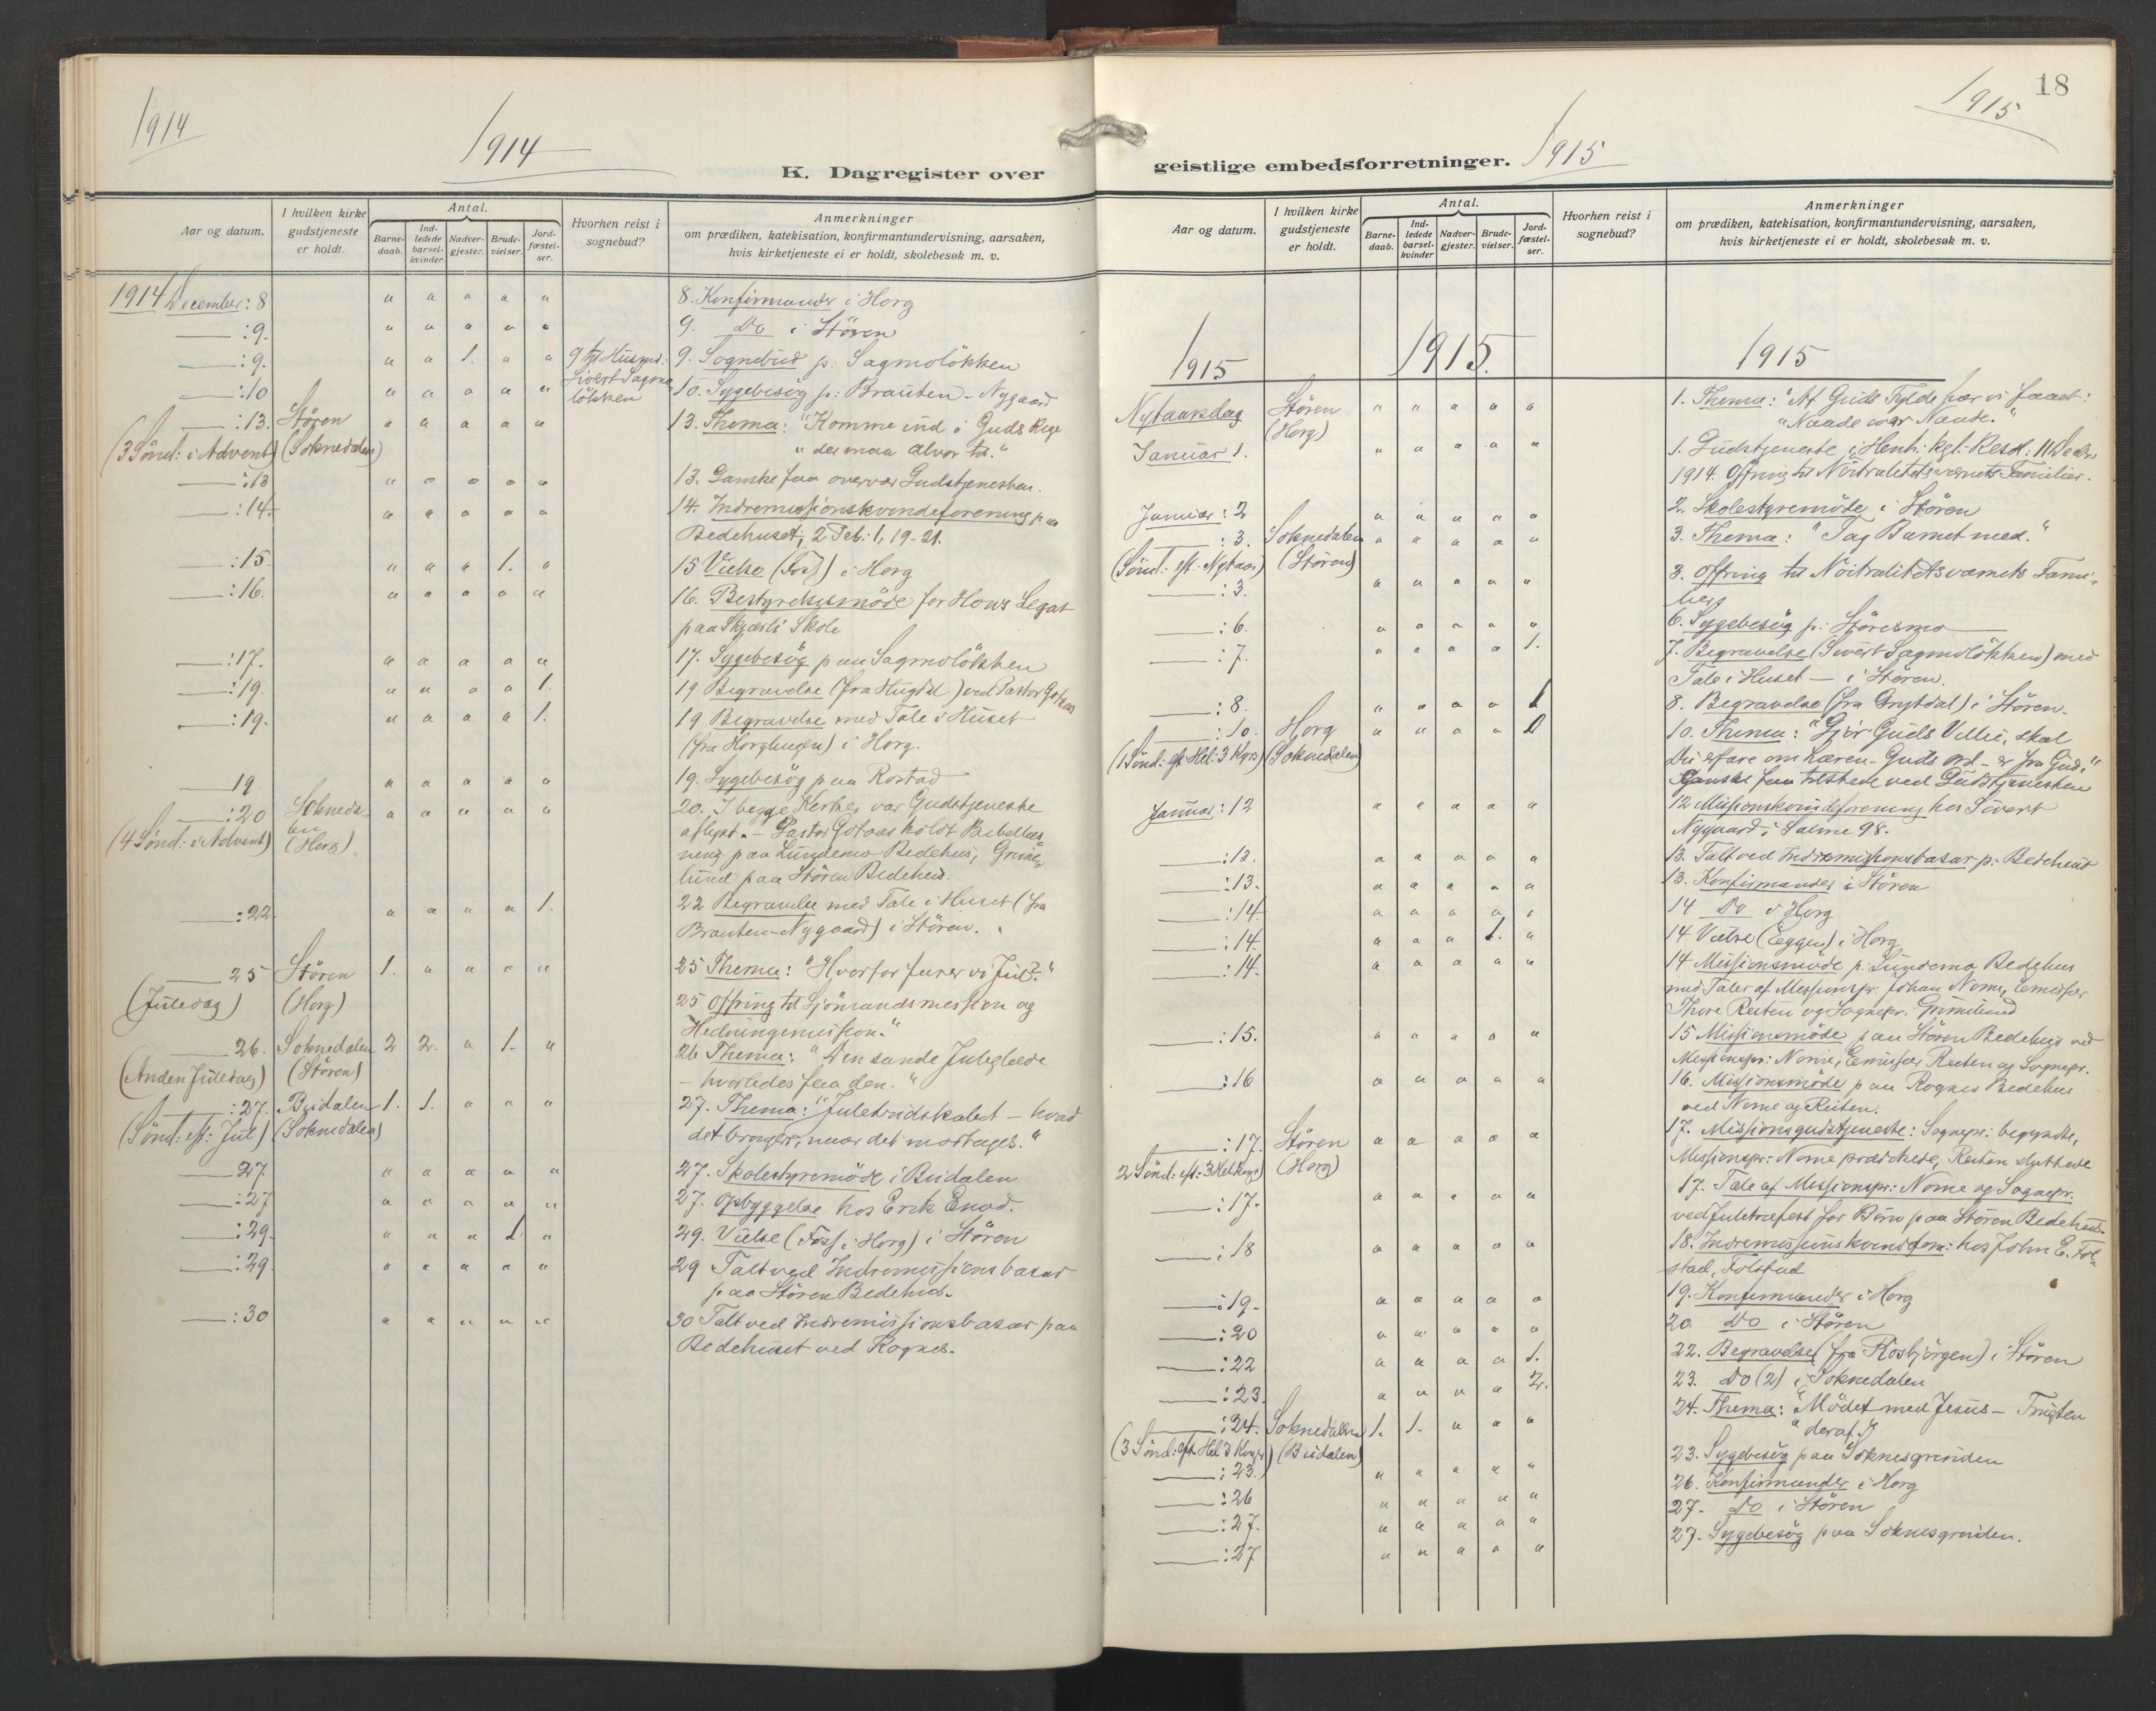 1914
1914
K. Dagregister over
Aar og datum.
I hvilken kirke gudstjeneste er holdt.
Antal.
Barne-daab.
Ind-ledede barsel-kvinder
Nadver-gjester.
Brude-vielser.
Jord-fæstel-ser.
Hvorhen reist i sognebud?
Anmerkninger
om prædiken, katekisation, konfirmantundervisning, aarsaken,
hvis kirketjeneste ei er holdt, skolebesøk m. v.
1914 December: 8 " " " " " 8. Konfirmander i Horg
: 9. " " " " " 9. Do i Stören
: 9. " " 1. " " 9 til Husmd: Sivert Sagmolökken 9. Sognebud p: Sagmolökken
: 10 " " " " " 10. Sygebesög p: Brauten-Nygaard
: 13. Stören " " " " " 13. Thema: "Komme ind i Guds Rige
(3 Sönd: i Advent) (Soknedalen) " der maa Alvor til."
: 13 " " " " " 13. Ganske faa overvær Gudstjenesten.
: 14. " " " " " 14. Indremissionskvindeforening paa
Bedehuset, 2 Peb: 1, 19-21.
: 15. " " " 1. " 15 Vielse (Foss) i Horg
: 16. " " " " " 16. Bestyrelsesmöde for Hovs Legat
paa Skjærli Skole
: 17. " " " " " 17. Sygebesög paa Sagmolökken
: 19. " " " " 1. 19 Begravelse (fra Hugdal) ved Pastor Gotaas
: 19. " " " " 1. 19 Begravelse med Tale i Huset
(fra Horghagen) i Horg.
19 " " " " " 19. Sygebesög paa Rostad
: 20 Soknedalen " " " " " 20. I begge Kirker var Gudstjeneste
(4 Sönd: i Advent) (Horg) aflyst. - Pastor Gotaas holdt Bibellæs-
ning paa Lundemo Bedehus, Grimelund
paa Stören Bedehus.
: 22 " " " " 1. 22 Begravelse med Tale i Huset (fra
Brauten-Nygaard) i Stören.
25 Stören 1. " " " " 25 Thema: "Hvorfor feirer vi Jul?"
(Juledag) (Horg) 25 Offring til Sjömandsmission og
Hedningemission."
26. Soknedalen 2 2. " 1. " 26 Thema: "Den sande Juleglæde
(Anden Juledag) (Stören) - hvorledes faa den."
: 27. Budalen 1. 1. " " " 27. Thema: "Julebudskabet - hvad
(Sönd: eft: Jul) (Soknedalen) det bringer, naar det mottages."
27 " " " " " 27. Skolestyremöde i Budalen
: 27 " " " " " 27. Opbyggelse hos Erik Enod.
: 29. " " " 1 " 29. Vielse (Foss i Horg) i Stören
: 29 " " " " " 29 Talt ved Indremissionsbasar
paa Stören Bedehus.
: 30 " " " " " 30 Talt ved Indremissionsbasar paa
Bedehuset ved Rognes.
18
1915
geistlige embedsforretninger. 1915
Aar og datum.
I hvilken kirke gudstjeneste er holdt.
Antal.
Barne-daab.
Ind-ledede barsel-kvinder
Nadver-gjester.
Brude-vielser.
Jord-fæstel-ser.
Hvorhen reist i sognebud?
Anmerkninger
om prædiken, katekisation, konfirmantundervisning, aarsaken,
hvis kirketjeneste ei er holdt, skolebesøk m. v.
1915 1915. 1915
Nytaarsdag Stören " " " " " 1. Thema: "Af Guds Fylde har vi faaet:
(Horg) "Naade over Naade."
Januar 1. " " " " " 1. Gudstjeneste i Henh: kgl. Resol: 11 Decbr.
1914. Offring til Nöitralitetsværnets Familier.
Januar: 2 " " " " " 2. Skolestyremöde i Stören
: 3. Soknedalen " " " " " 3. Thema: "Tag Barnet med."
(Sönd: eft: Nytaar) (Stören)
: 3. " " " " " 3. Offring til Nöitralitetsværnets Fami-
lier
: 6. " " " " " 6. Sygebesög p: Störesmo
: 7. " " " " 1. 7. Begravelse (Sivert Sagmolökken) med
Tale i Huset - i Stören.
: 8. " " " " 1 8. Begravelse (fra Grytdal) i Stören.
: 10. Horg " " " " " 10. Thema: "Gjör Guds Villie, skal
(1 Sönd: eft. Hel: 3 Kgrs) (Soknedalen) du erfare om Læren - Guds Ord - er fra Gud."
Ganske faa tilstede ved Gudstjenesten
Januar: 12 " " " " " 12 Missionskvindeforening hos Sivert
Nygaard i Salme 98.
: 13. " " " " " 13. Talt ved Indremissionsbasar p: Bedehuset
: 13. " " " " " 13. Konfirmander i Stören
: 14. " " " " " 14 Do i Horg
: 14. " " " 1. " 14 Vielse (Eggen) i Horg
: 14. " " " " " 14 Missionsmöde p: Lundemo Bedehus
med Taler af Missionspr: Johan Nome, Emissær
Thore Reiten og Sognepr. Grimelund
: 15. " " " " " 15 Missionsmöde paa Stören Bedehus ved
Missionspr: Nome, Emissær Reiten og Sognepr.
: 16 " " " " " 16. Missionsmöde paa Rognes Bedehus
ved Nome og Reiten.
: 17. Stören " " " " " 17. Missionsgudstjeneste: Sognepr: begyndte,
2 Sönd: eft: 3 Helkong) (Horg) Missionspr: Nome prædikede, Reiten sluttede
: 17. " " " " " 17. Tale af Missionspr: Nome og Sognepr.
ved Juletræfest for Börn paa Stören Bedehus
: 18 " " " " " 18. Indremissionskvindefore: hos John E. Fol-
stad, Folstad
: 19. " " " " " 19. Konfirmander i Horg
: 20 " " " " " 20 Do i Stören
: 22 " " " " 1. 22. Begravelse (fra Rosbjörgen) i Stören
: 23. " " " " 2. 23. Do (2) i Soknedalen
: 24. Soknedalen 1. 1. " " " 24. Thema: "Mödet med Jesus - Frugten
(3 Sönd: eft. Hel 3 Konger) (Budalen) "deraf."
: 23. " " " " " 23. Sygebesög paa Soknesgrinden
: 26 " " " " " 26. Konfirmander i Horg
: 27. " " " " " 27. Do i Stören
: 27 " " " " " 27. Sygebesög paa Soknesgrinden.